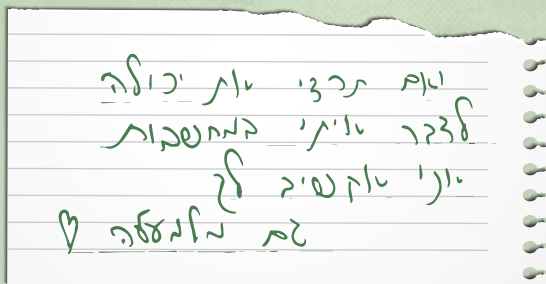 ואם תרצי את יכולה
לדבר איתי במחשבות
אני אקשיב לך
גם מלמעלה ♡